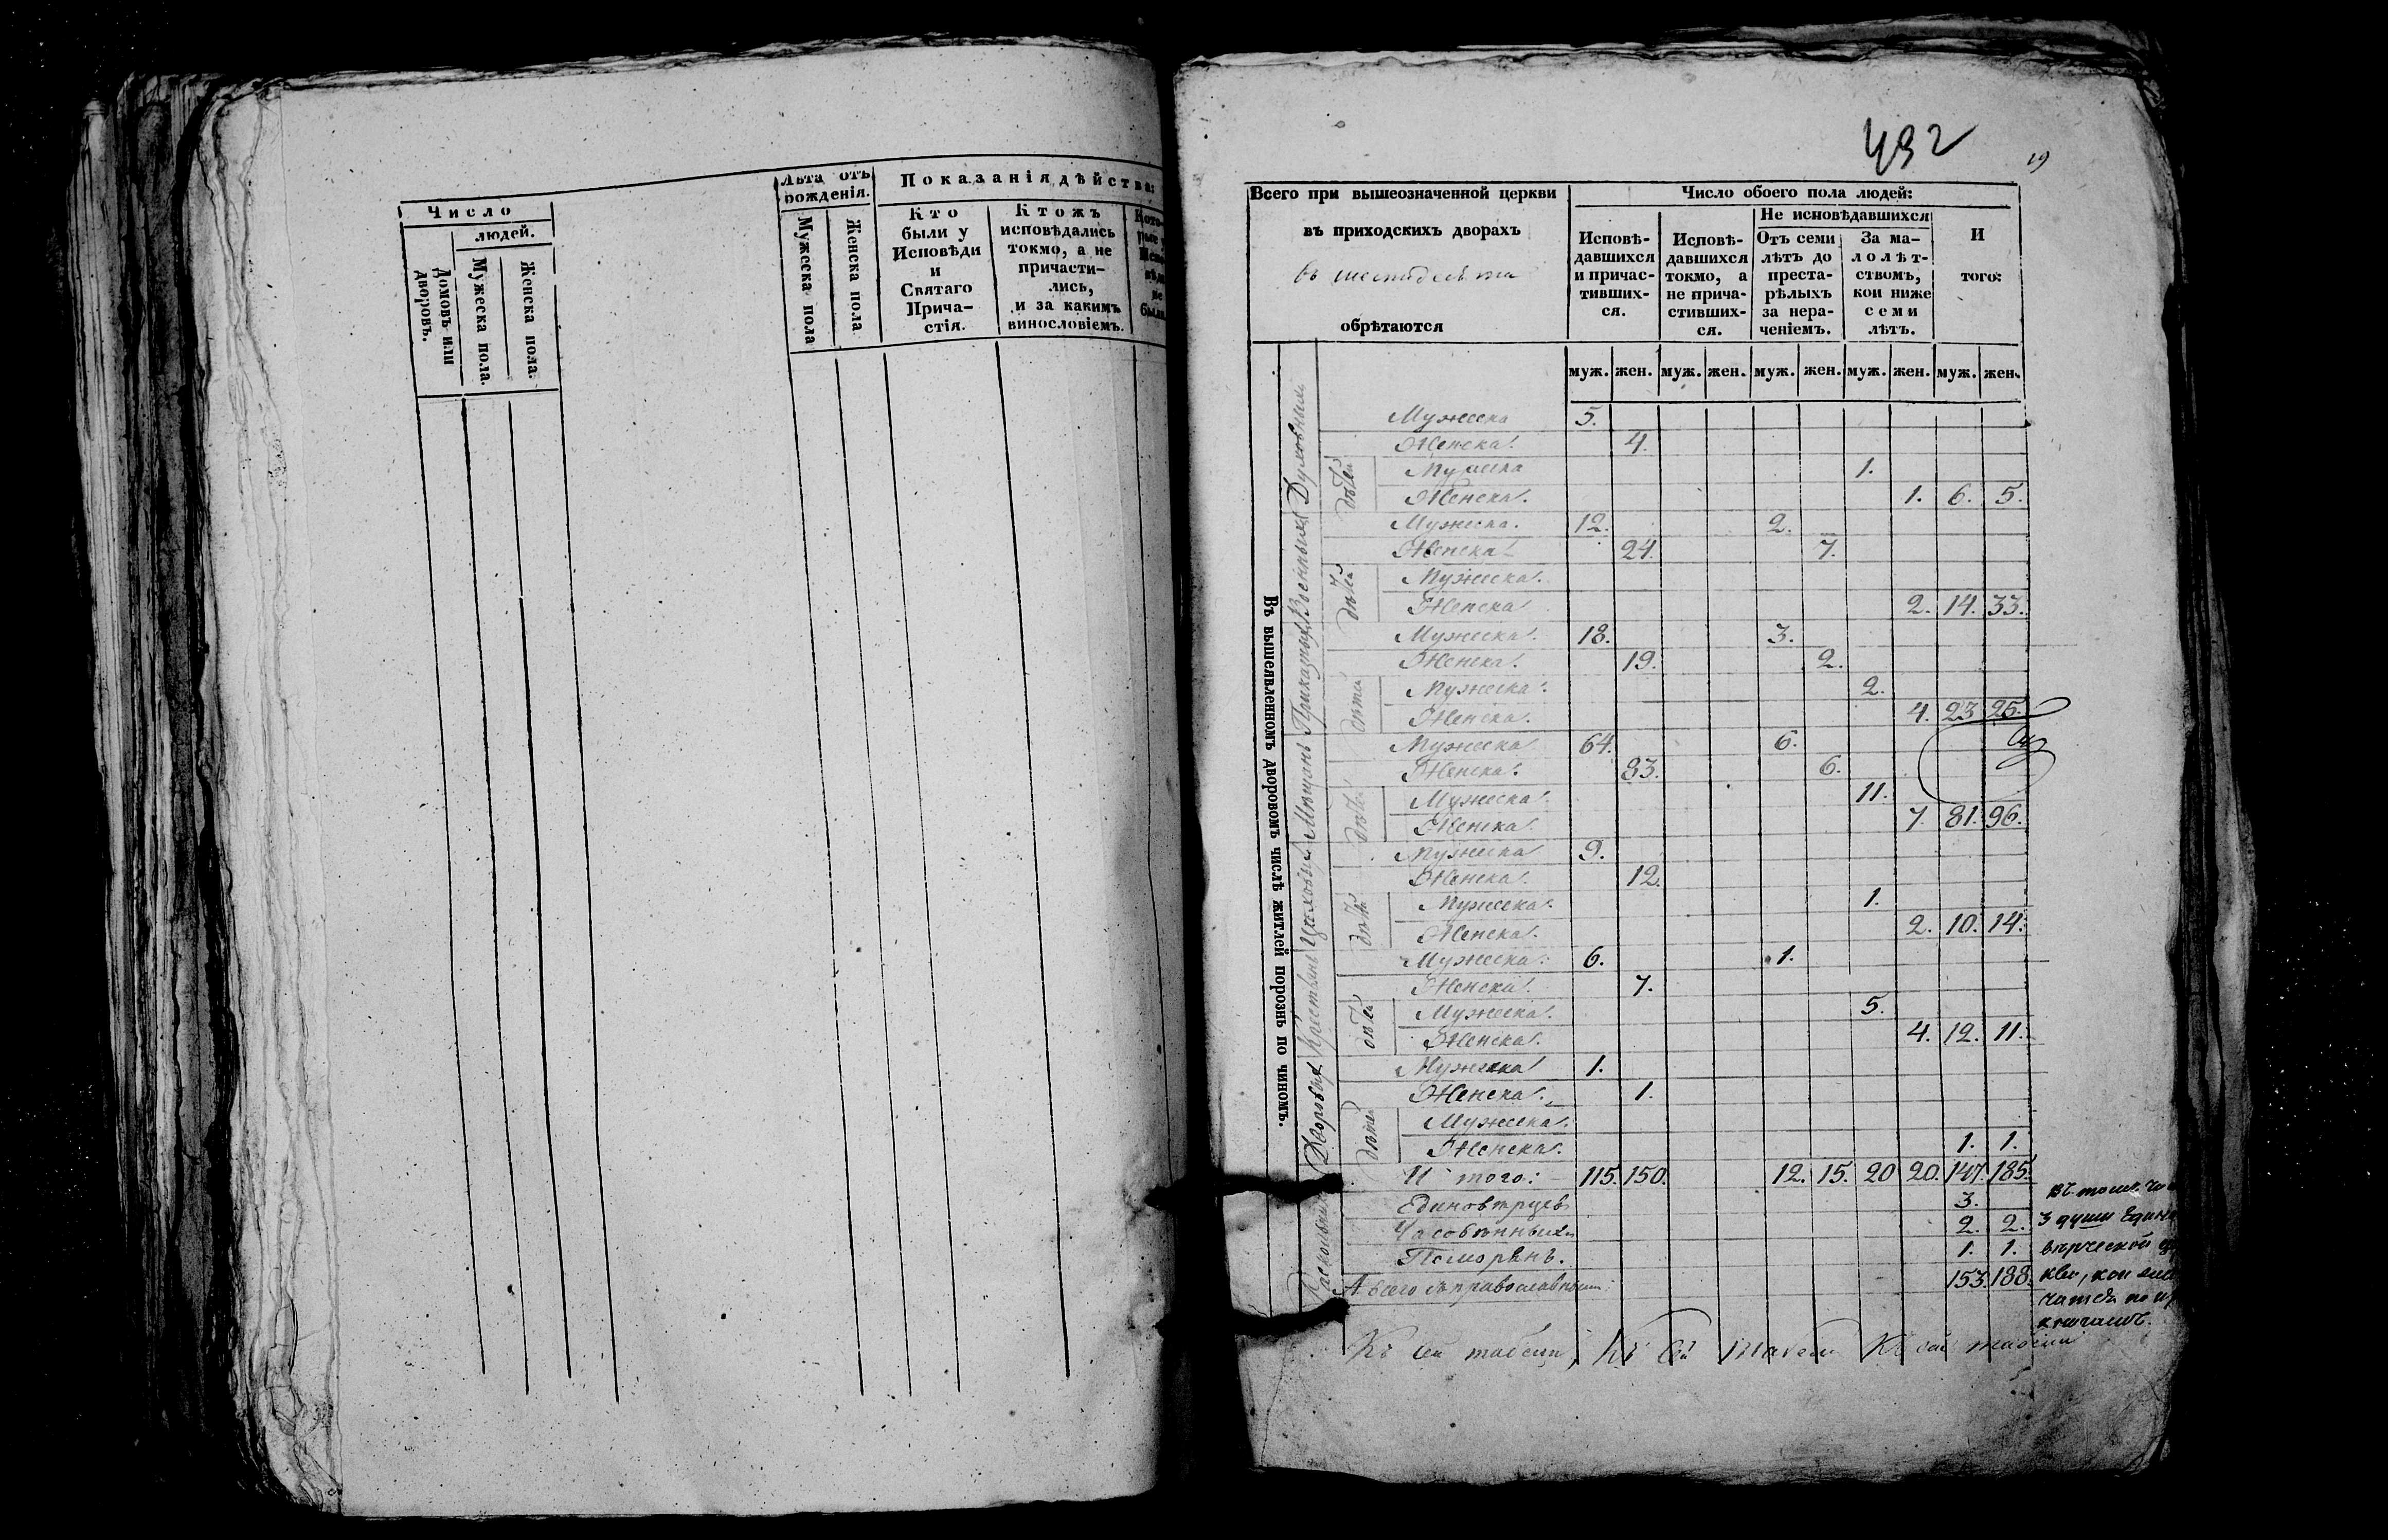 Число
людей.
Домовъ или дворовъ.
Мужеска пола.
Женска пола.
Лѣта отъ рожденія.
Мужеска пола
Женска пола
Показанія дѣйства:
Кто были у Исповѣди и Святаго Прича-стія.
Ктожъ исповѣдались токмо, а не причасти-лись, и за какимъ винословіемъ.
492
19
Всего при вышеозначенной церкви
въ приходскихъ дворахъ
въ
обрѣтаются
Число обоего пола людей:
Исповѣ-давшихся и причас-тивших-ся.
Исповѣ-давшихся токмо, а не прича-стивших-ся.
Не исповѣдавшихся
Отъ семи лѣтъ до преста-рѣлыхъ за нера-ченіемъ.
За ма-лолѣт-ствомъ, кои ниже семи лѣтъ.
И того:
муж. жен. муж. жен. муж. жен. муж. жен. муж. жен.
Въ вышеявленномъ дворовомъ числѣ житлей порознь по чиномъ.
Духовныхъ
Мужеска 5.
Женска. 4.
дѣтей
Мужеска 1.
Женска. 1. 6. 5.
Военныхъ
Мужеска. 12. 2.
Женска. 24. 7.
дѣтей
Мужеска.
Женска 2. 14. 33.
Приказныхъ
Мужеска. 18. 3.
Женска. 19. 2.
дѣтей
Мужеска. 2.
Женска. 4. 23 25.
Мѣщанъ
Мужеска 64. 6.
Женска. 83. 6.
дѣтей
Мужеска. 11.
Женска. 7. 81. 96.
Цеховыхъ
Мужеска 9.
Женска. 12.
дѣтей
Мужеска. 1.
Женска. 2. 10. 14.
Крестьянъ
Мужеска. 6. 1.
Женска. 7.
дѣтей
Мужеска. 5.
Женска. 4. 12. 11.
Дворовыхъ
Мужеска 1.
Женска. 1.
дѣтей
Мужеска.
Женска. 1. 1.
И того: 115. 150. 12. 15. 20 20. 147. 185.
Раскольник
Единовѣрцевъ 3.
Часовенныхъ 2. 2.
Поморянъ. 1. 1.
А всего съ православными 153. 188.
въ томъ
3 души Един
вѣрческой
кви, кои
книгамъ.
Къ сей табели, Къ сей табели Къ сей табели